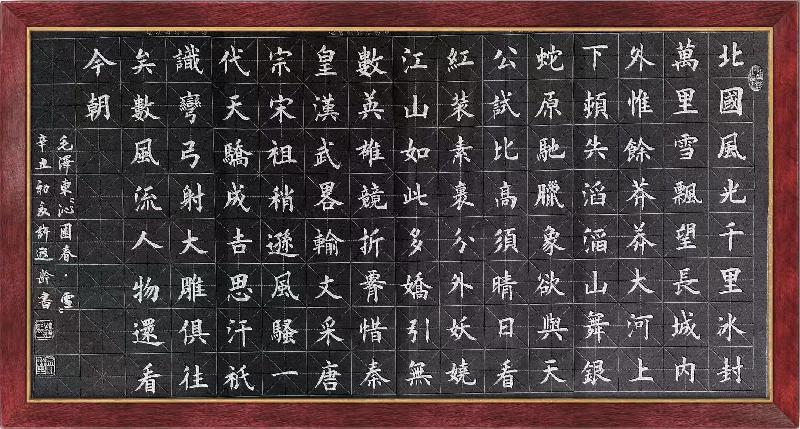 北國風光千里冰封
萬里雪飄望長城內
外惟餘莽莽大河上
下頓失滔滔山舞銀
蛇原馳臘象欲與天
公試比高須晴日看
紅裝素裹分外妖嬈
江山如此多嬌引無
數英雄競折腰惜秦
皇漢武畧輸文采唐
宗宋祖稍遜風騷一
代天驕成吉思汗祇
識彎弓射大雕俱往
矣數風流人物還看
今朝
毛澤東《沁園春·雪》
辛丑初夏許書